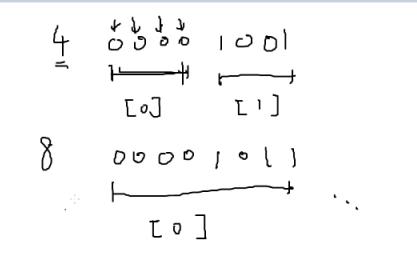 4 0000 1001
[0] [1]
8 00001011
[0] ...